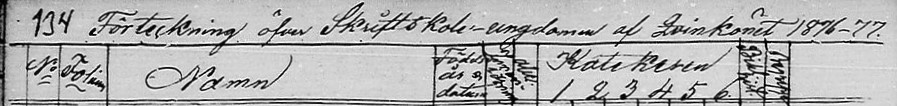 134 Förteckning öfver Skriftskole-ungdomen af Qvinkönet 1876-77.
No Folium Namn Född år o. datum Katekesen
1 2 3 4 5 6